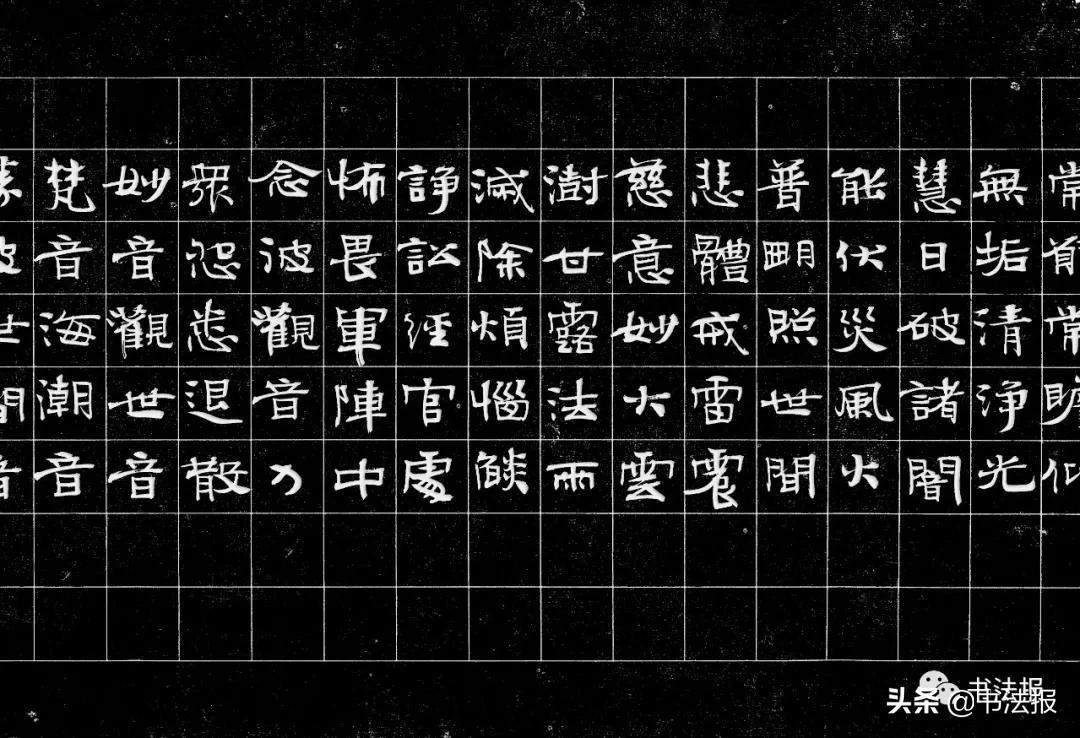 常願常瞻仰
無垢清淨光
慧日破諸闇
能伏災風火
普明照世間
悲體戒雷震
慈意妙大雲
澍甘露法雨
滅除煩惱燄
諍訟經官處
怖畏軍陣中
念彼觀音力
眾怨悉退散
妙音觀世音
梵音海潮音
勝彼世間音
书法报
头条@书法报